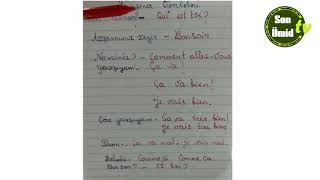 Qui est toi?
Axşamınız xeyir - Bonsoir
Necəsiniz? - Comment allez-vous
yaxşıyam - Ça va!
Ça va bien!
Je vais bien.
Çox yaxşıyam - Ça va très bien!
Je vais très bien!
Pisəm - Ça va mal, je vais mal.
Comme ci Comme ça
Et toi?
Son
Ümid
tv